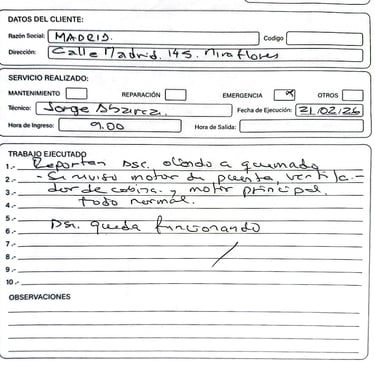 DATOS DEL CLIENTE:
Razón Social: MADRID.
Codigo
Dirección: Calle Madrid. 145. Miraflores
SERVICIO REALIZADO:
MANTENIMIENTO REPARACIÓN EMERGENCIA x OTROS
Técnico: Jorge Fecha de Ejecución: 21/02/26
Hora de Ingreso: 9.00 Hora de Salida:
TRABAJO EJECUTADO
1.- Reportan asc. oliendo a quemado
2.- - Se reviso motor de puerta, ventila-
3.- dor de cabina. y motor principal.
4.- todo normal.
5.-
6.- Asc. queda funcionando
7.-
8.-
9.-
10.-
OBSERVACIONES